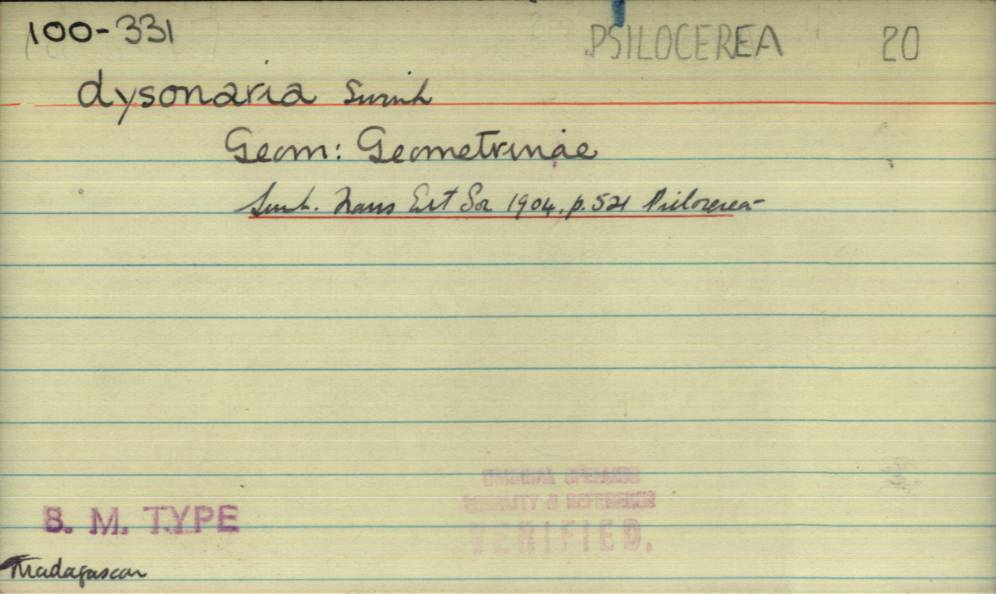 100-331 PSILOCEREA 20
dysonaria Swinh
Geom: Geometrinae
Swinh. Trans Ent Soc 1904. p. 521 Psilocerea
ORIGINAL SPELLING
LOCALITY & REFERENCE
VERIFIED.
B. M. TYPE
Madagascar